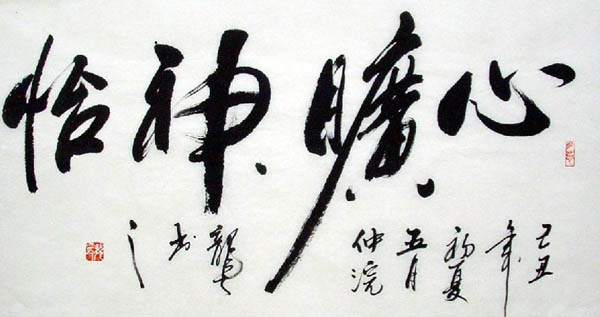 心曠神怡
己丑
年
初夏
五月
仲浣
龍
書